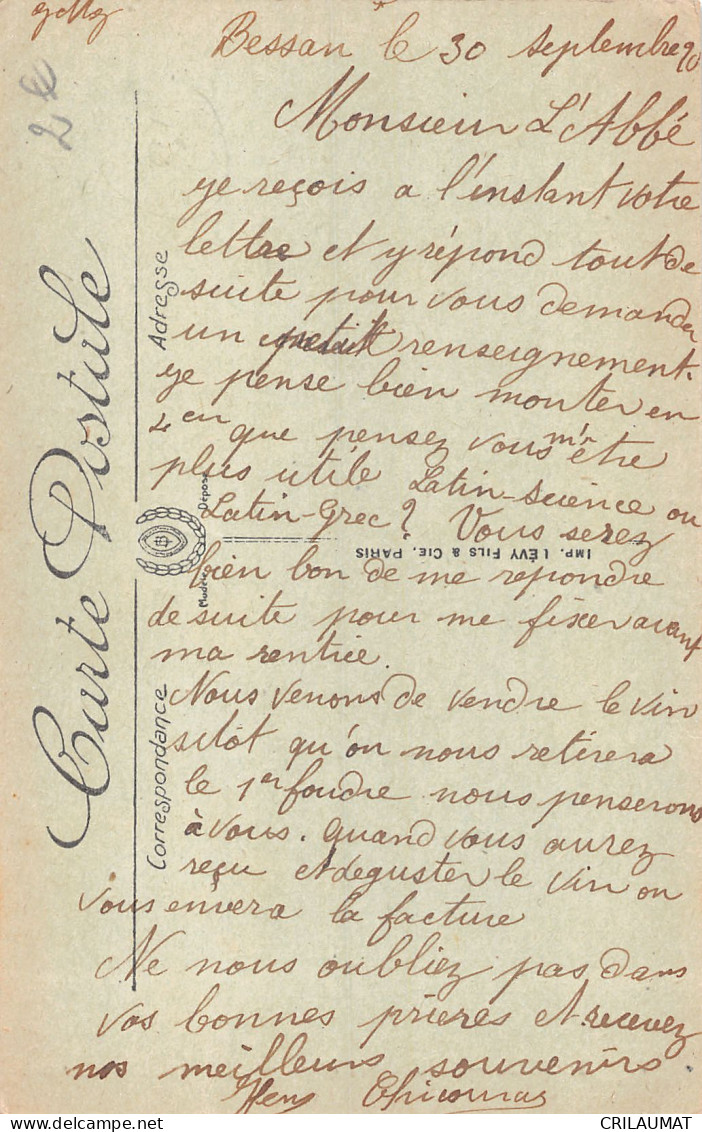 Bessan le 30 septembre 20
Monsieur L'Abbé
je reçois a l'instant votre
lettre et y répond tout de
suite pour vous demander
un petit renseignement.
je pense bien monter en
4em que pensez vous m'
être
plus utile Latin-science ou
Latin-Grec? Vous serez
bien bon de me repondre
de suite pour me fixer avant
ma rentrée.
Nous venons de vendre le vin
sitôt qu'on nous retirera
le 1er foudre nous penserons
à vous. quand vous aurez
reçu et deguster le vin on
vous enverra la facture
Ne nous oubliez pas dans
vos bonnes prières et recevez
nos meilleurs souvenirs
Carte Postale
Adresse
Correspondance
Modèle Déposé
IMP. LÉVY FILS & CIE, PARIS
2€
CRILAUMAT